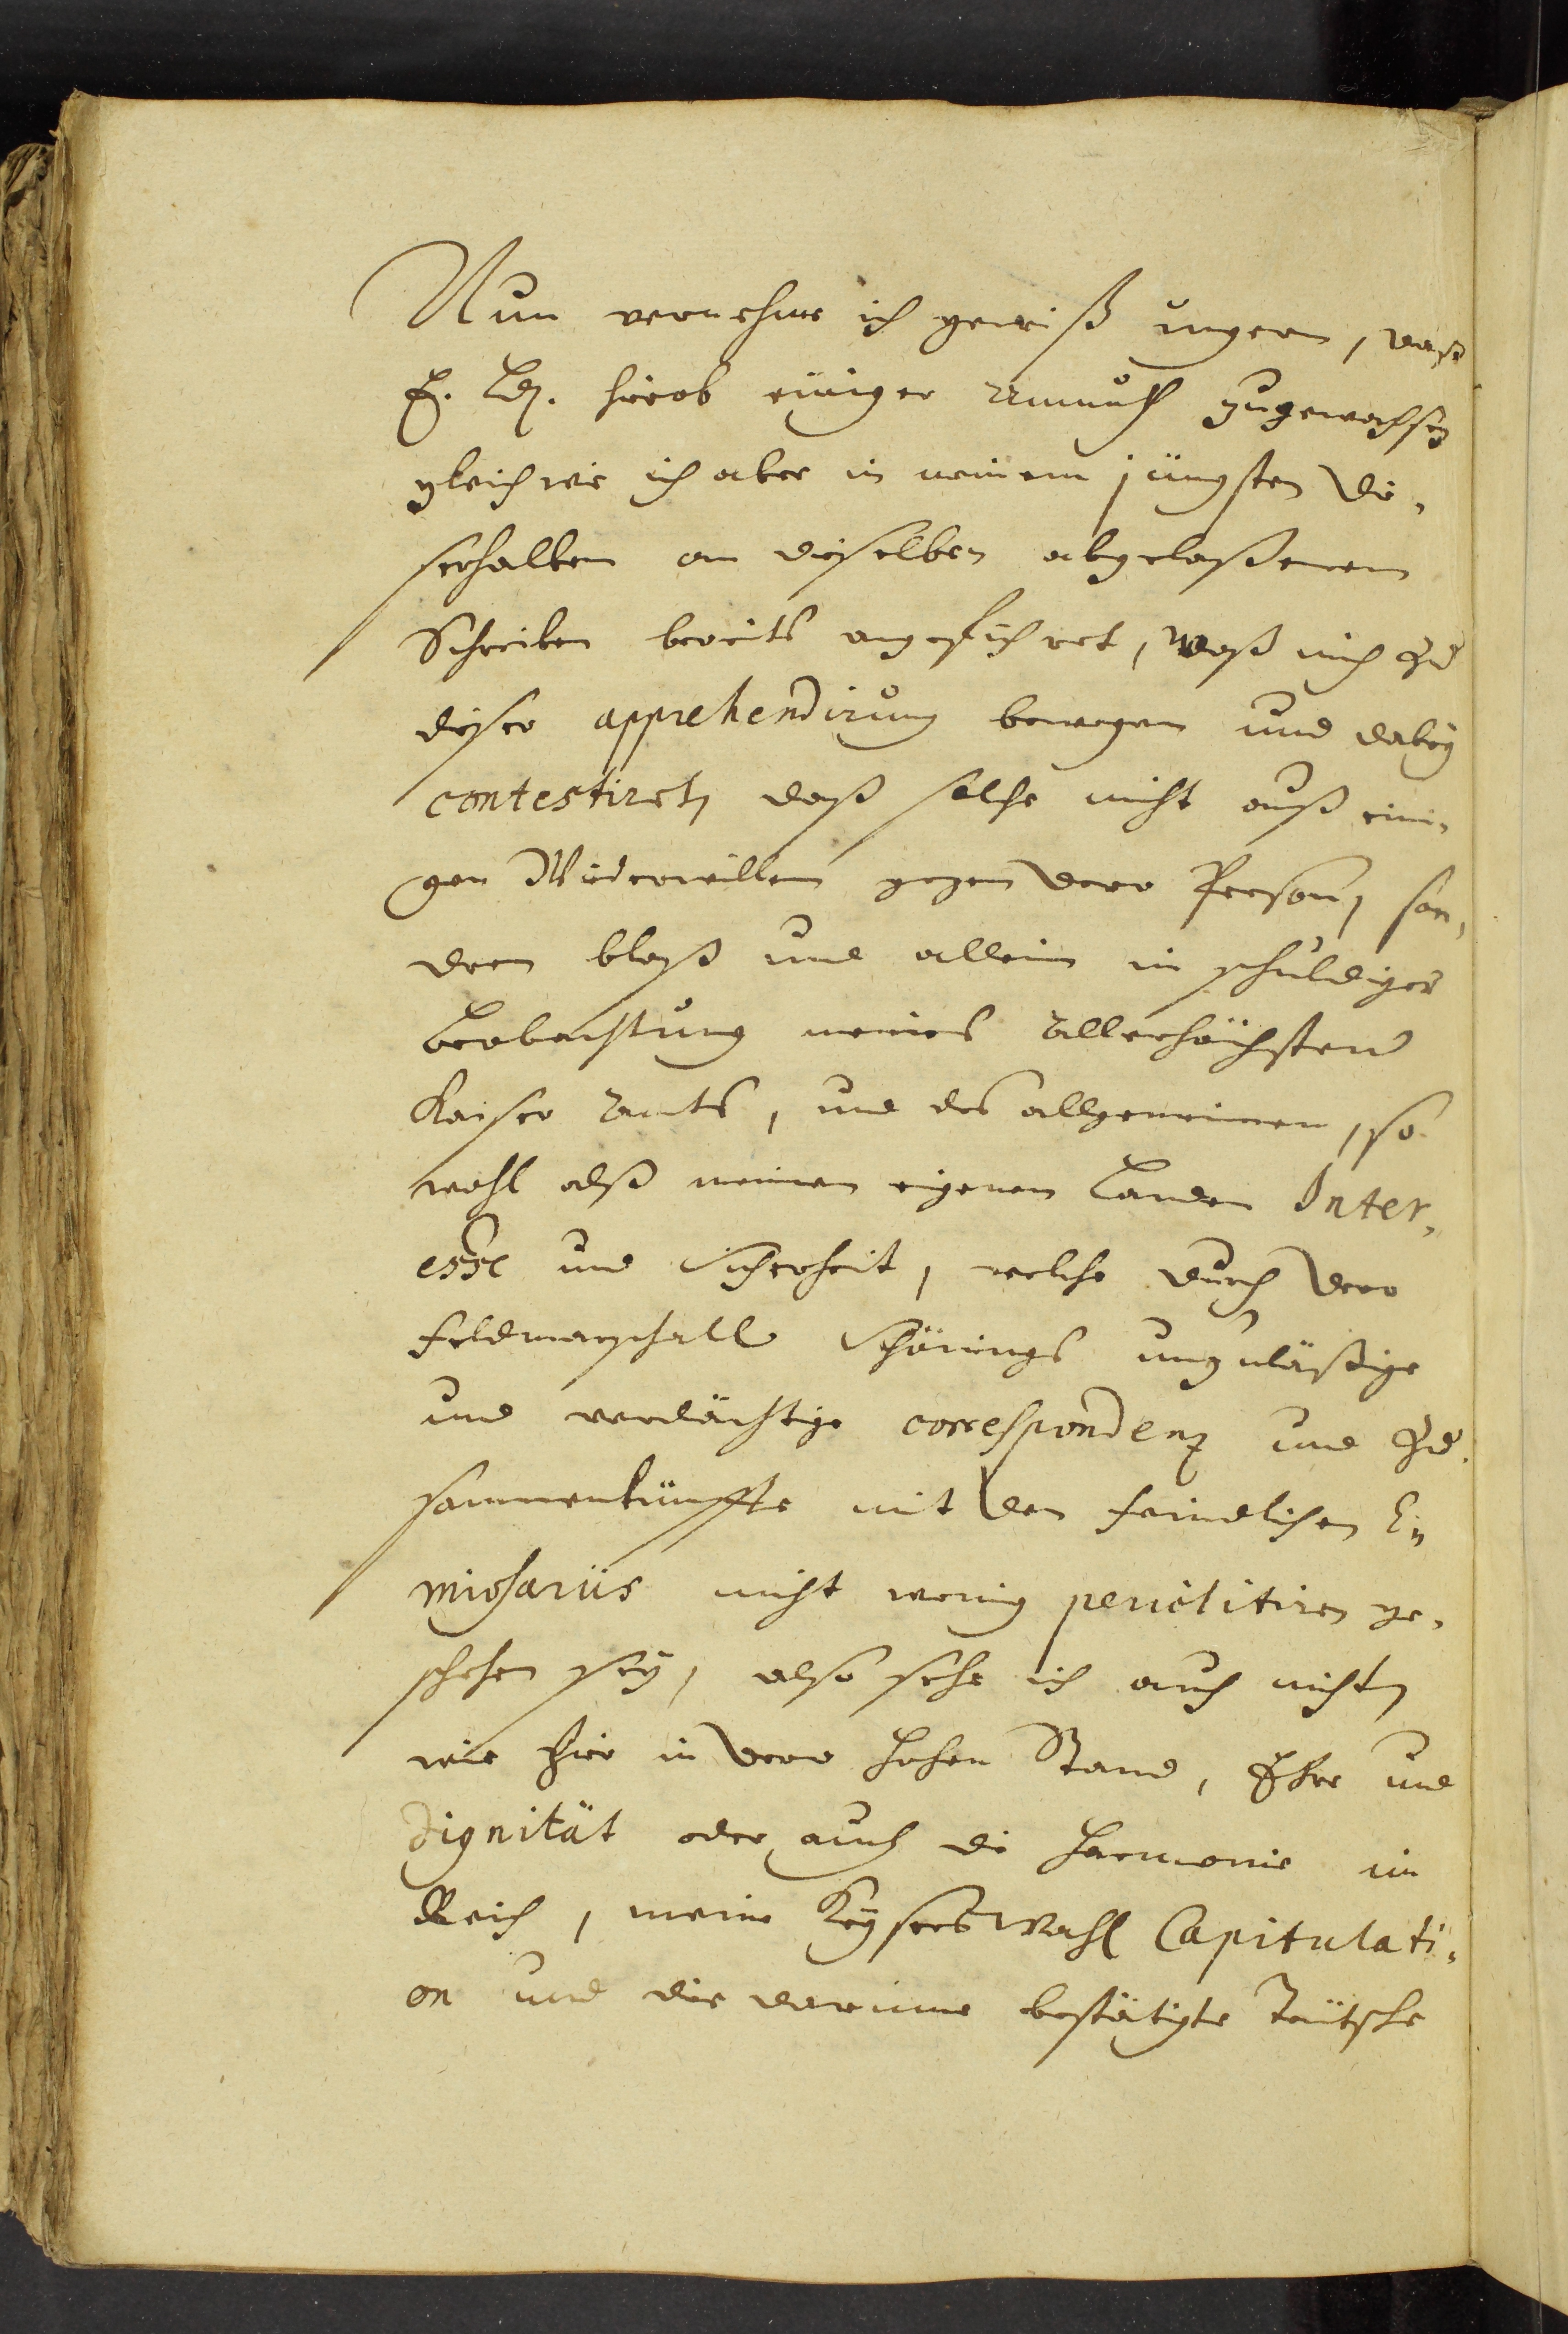 Nun vernehme ich gewiß ungern, daß
E. Ld. hierob einiger Unmuth zugewachsen
gleichwie ich aber in meinem jüngsten die-
serhalben an dieselben abgelaßenem
Schreiben bereits angeführet, waß mich zu
dieser apprehendirung bewogen und dabey
contestiret, daß solche nicht auß eini-
gen Wiederwillen gegen dero Person, son-
dern bloß und allein in schuldiger
beobachtung meines allerhöchsten
Kaiser Amts, und des allgemeinen, so
wohl alß meinen eigenen Landen Inter-
esse und Sicherheit, welche durch dero
Feldmarschall Schönings unzuläßige
und verdächtige correspondenz und zu-
sammenkünffte mit den feindlichen E-
mißariis nicht wenig periclitiren ge-
schehen sey, also sehe ich auch nicht,
wie hier in dero hohen Stand, Ehre und
Dignität oder auch die harmonie im
Reich, meine Keysers Wahl Capitulati-
on und die darinne bestätigte Teütsche